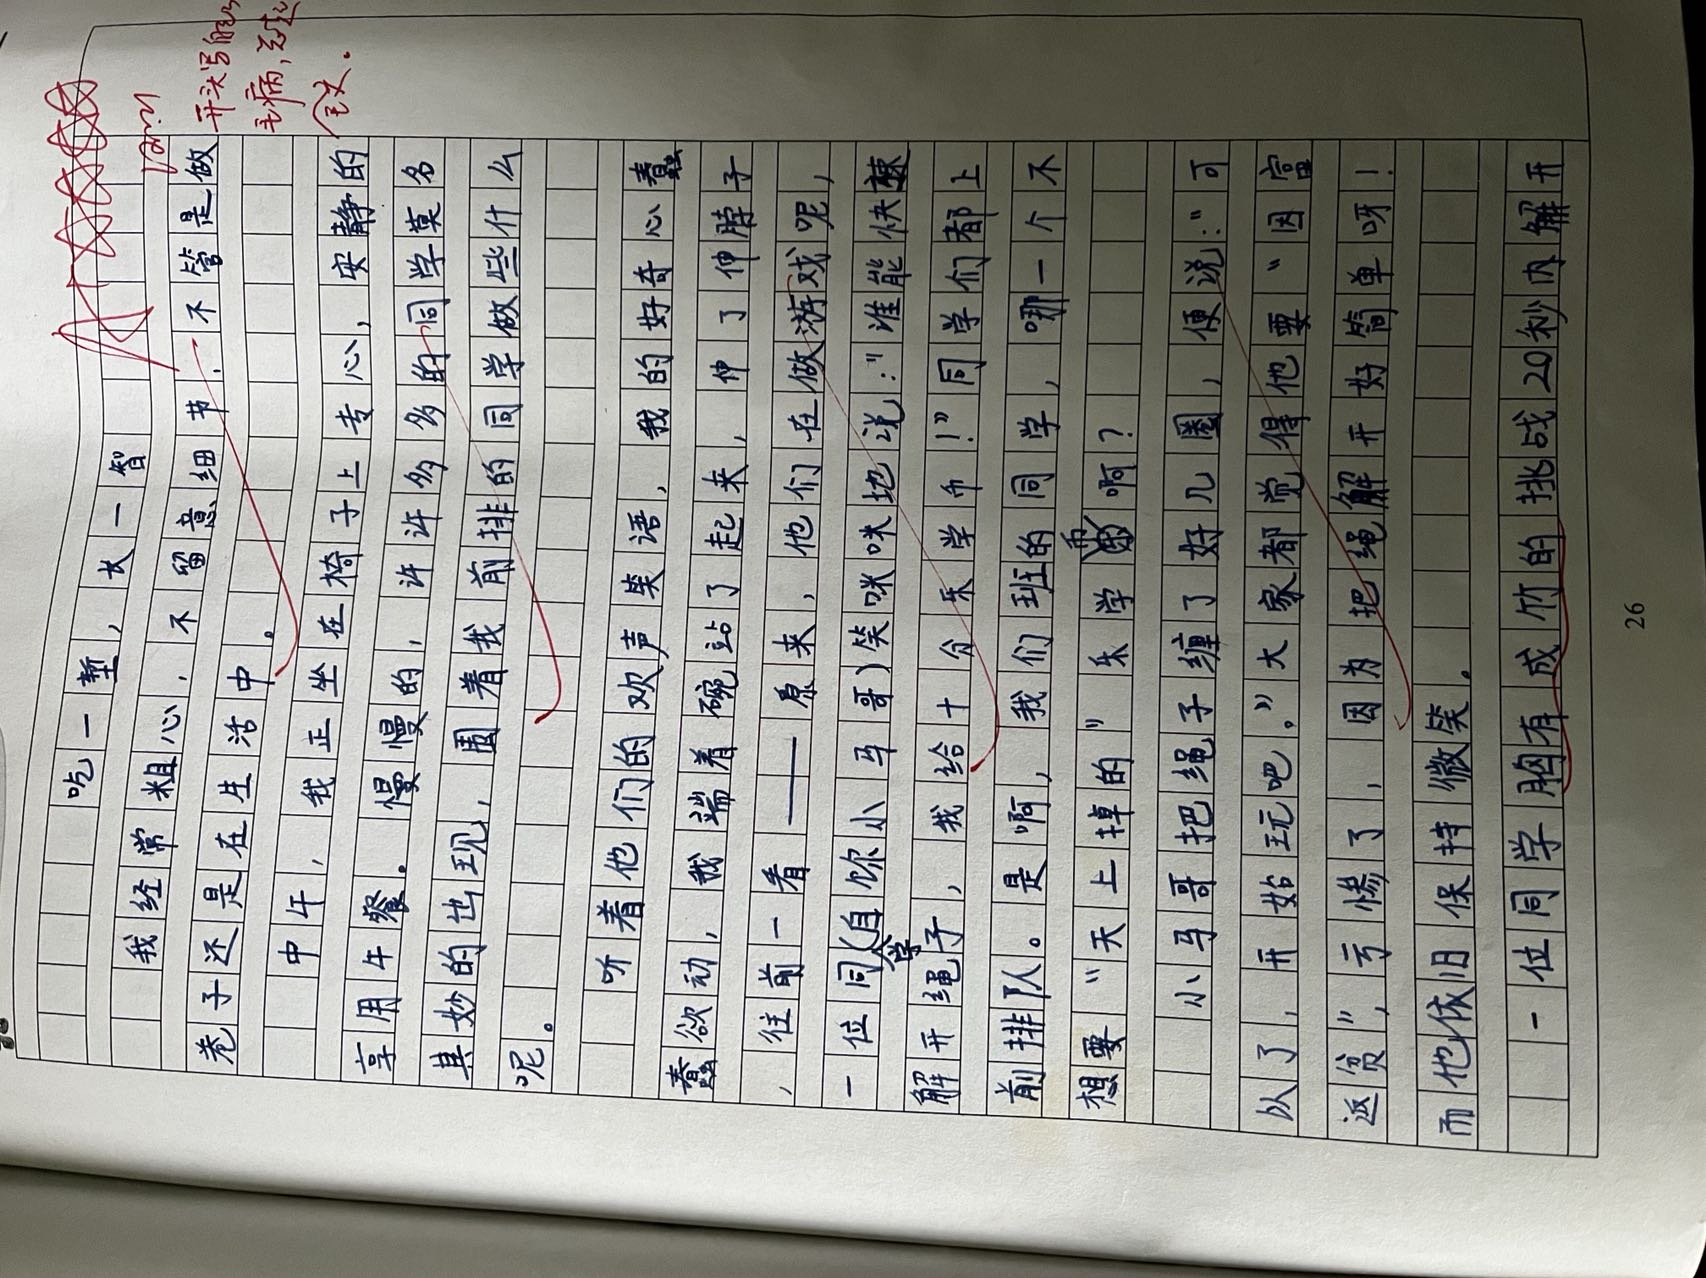 吃一堑，长一智
我经常粗心，不留意细节，不管是做
卷子还是在生活中。
中午，我正坐在椅子上专心，安静的
享用午餐。慢慢的，许许多多的同学莫名
其妙的出现，围着我前排的同学做些什么
呢。
听着他们的欢声笑语，我的好奇心蠢
蠢欲动，我端着碗站了起来，伸了伸脖子
，往前一看——原来，他们在做游戏呢，
一位同学(自称小马哥)笑咪咪地说："谁能快速
解开绳子，我给十分乐学币!"同学们都上
前排队。是啊，我们班的同学，哪一个不
想要"天上掉的"乐学币啊?
小马哥把绳子缠了好几圈，便说："可
以了，开始玩吧。"大家都觉得他要"因富
返贫"，亏惨了，因为把绳解开好简单呀!
而他依旧保持微笑。
一位同学胸有成竹的挑战20秒内解开
A+
开头写自己
毛病，总起
全文。
26